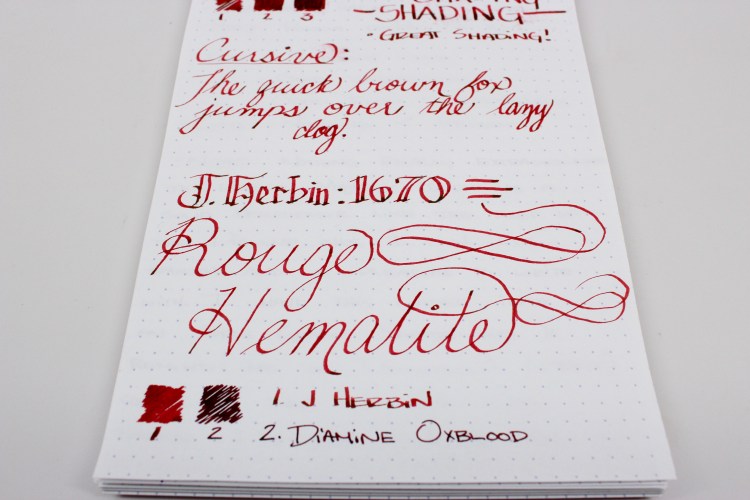 1 2 3
SHADING
SHADING
- GREAT SHADING!
Cursive:
The quick brown fox
jumps over the lazy
dog.
J. Herbin: 1670
Rouge
Hematite
1. J HERBIN
1 2
2. DIAMINE OXBLOOD